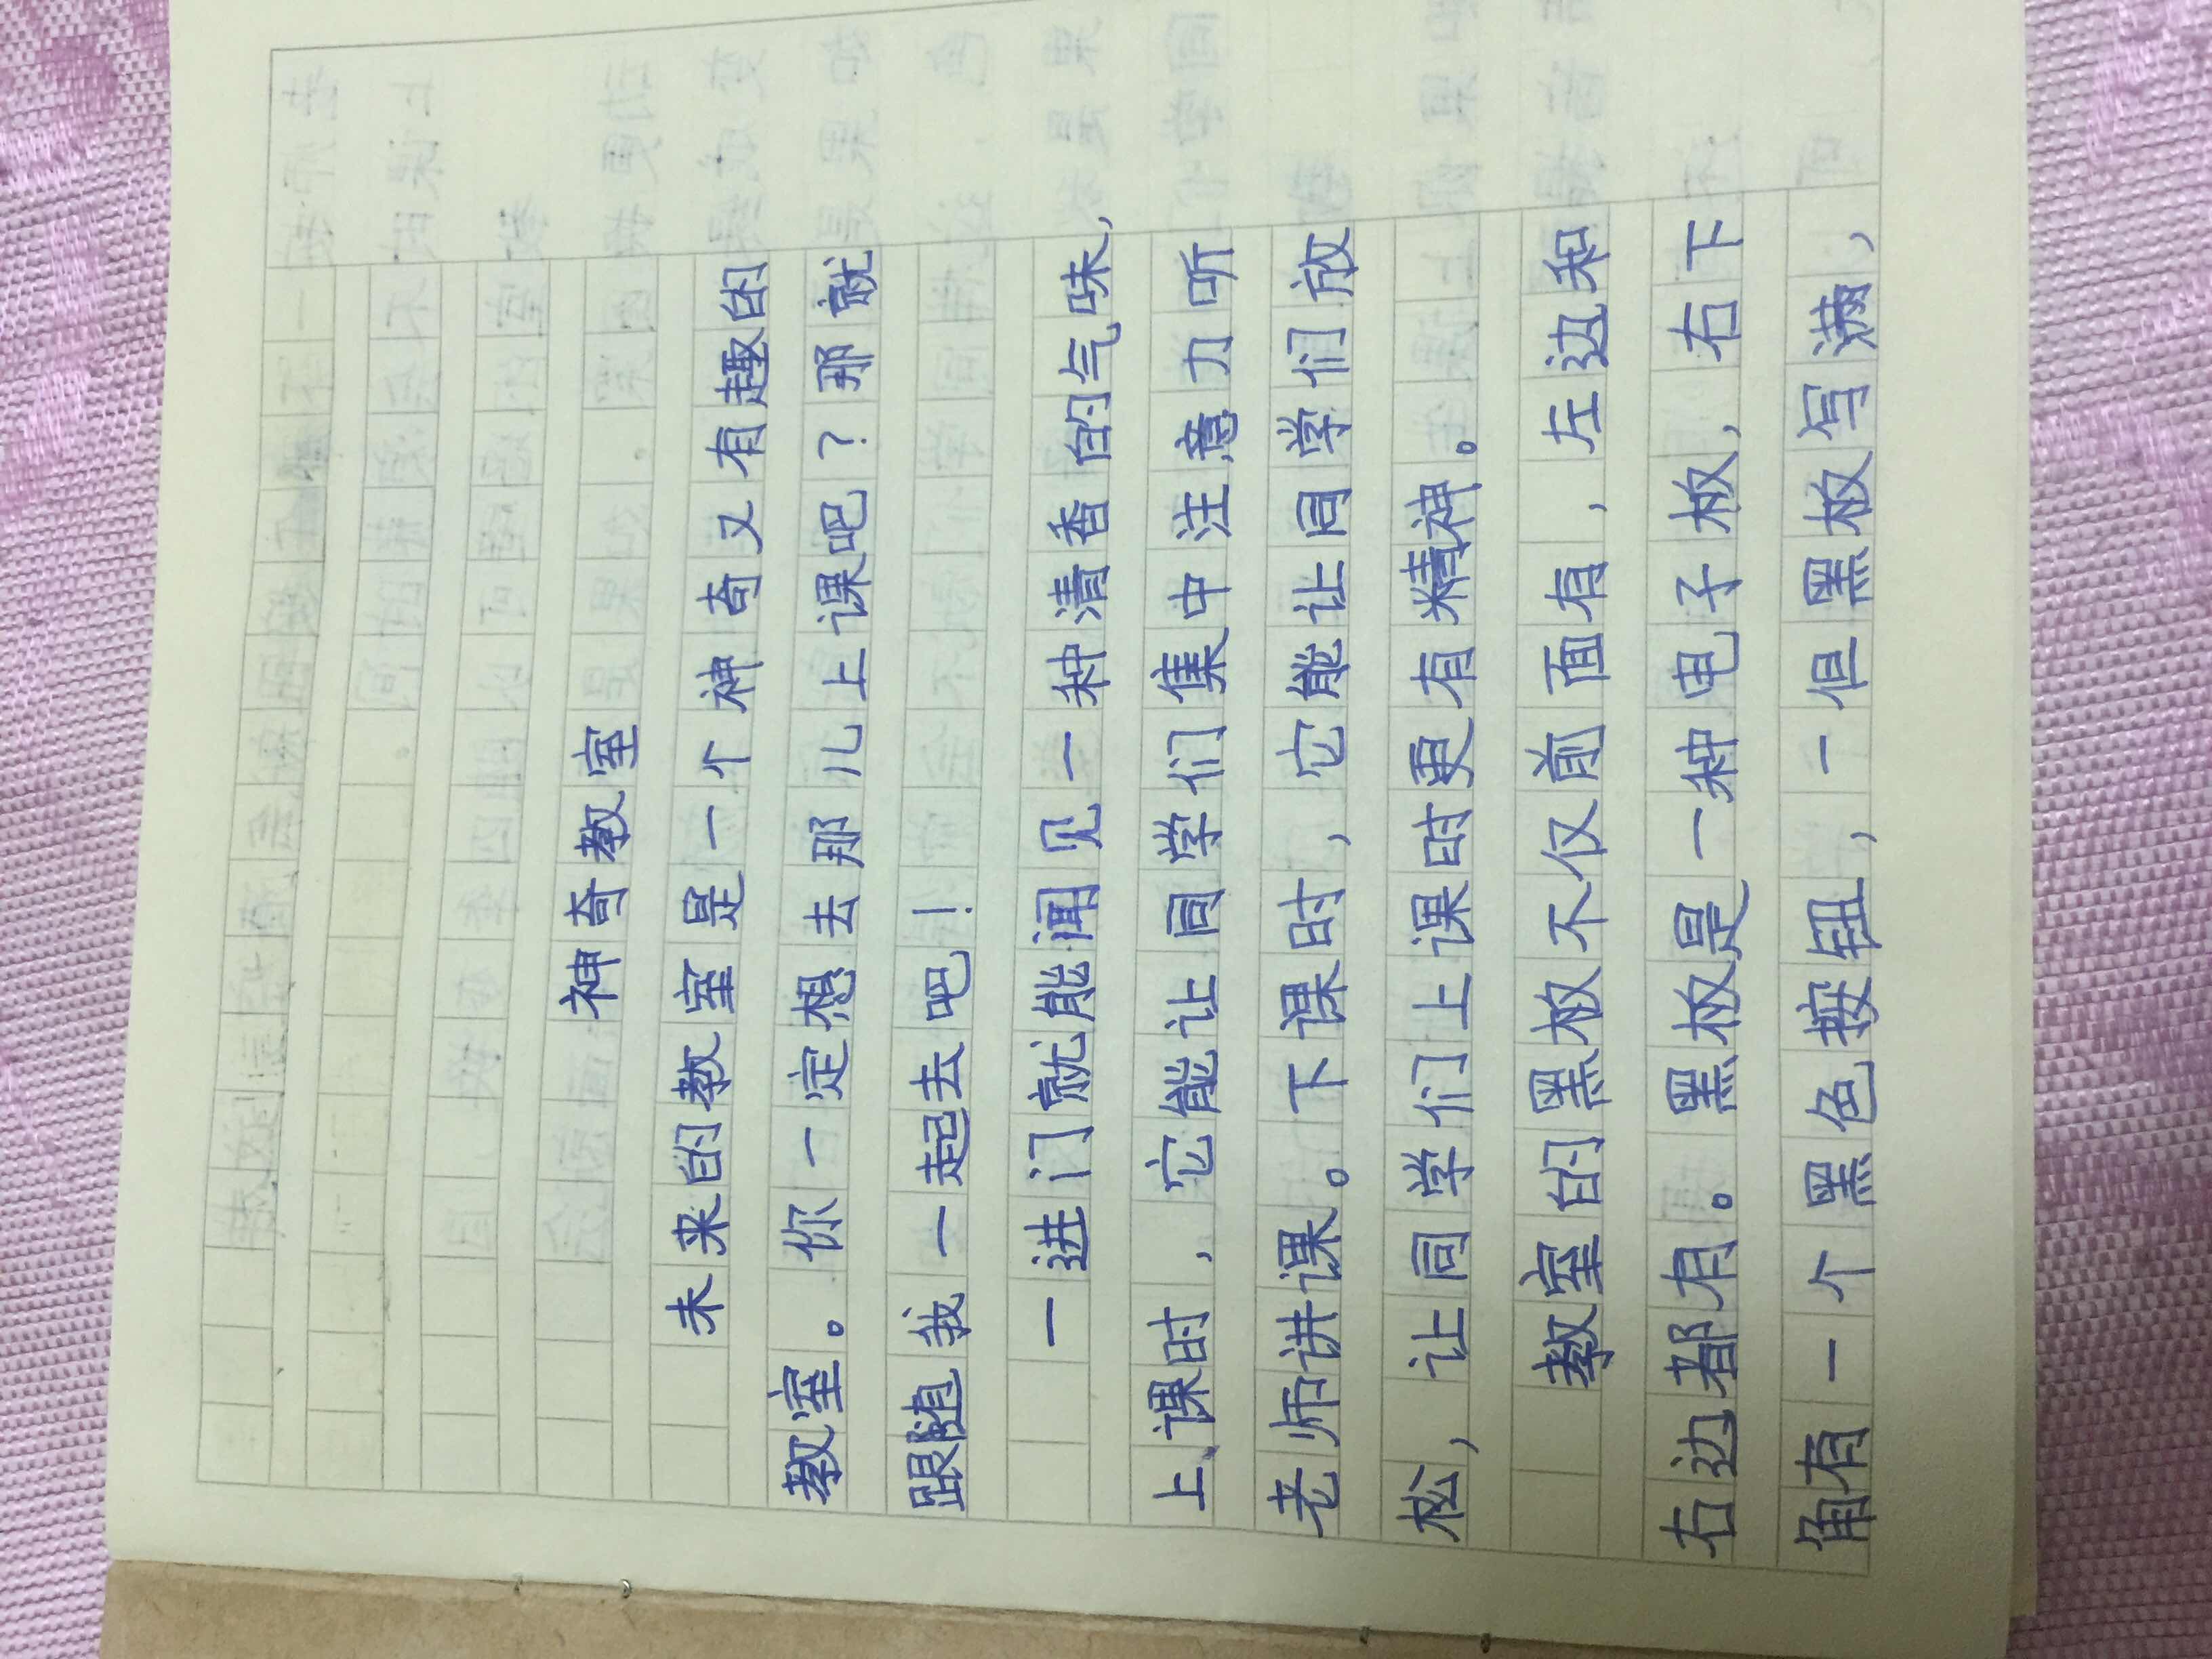 神奇教室
未来的教室是一个神奇又有趣的
教室。你一定想去那儿上课吧？那就
跟随我一起去吧！
一进门就能闻见一种清香的气味，
上课时，它能让同学们集中注意力听
老师讲课。下课时，它能让同学们放
松，让同学们上课时更有精神。
教室的黑板不仅前面有，左边和
右边都有。黑板是一种电子板，右下
角有一个黑色按钮，一但黑板写满，